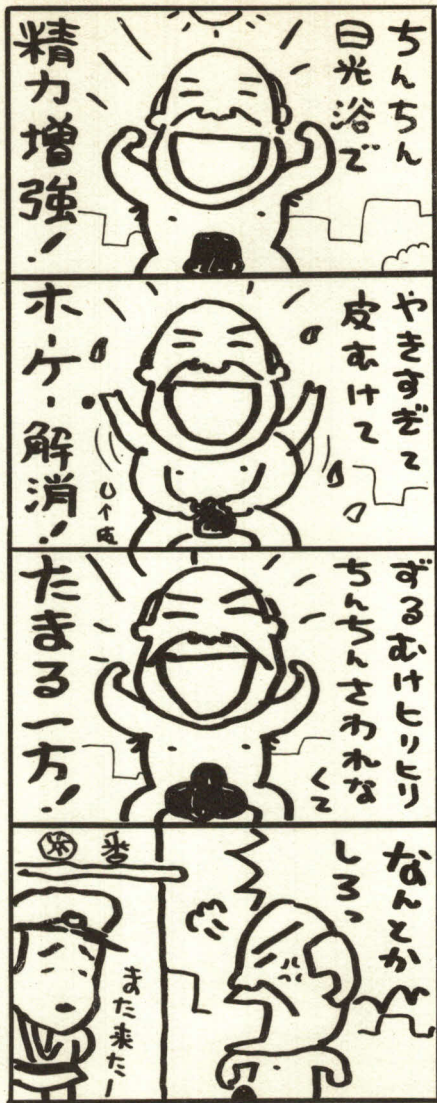 ちんちん
日光浴で
精力増強！
やきすぎて
皮むけて
ホーケー解消！
ずるむけヒリヒリ
ちんちんさわれな
くて
たまる一方！
なんとか
しろっ
また来たー